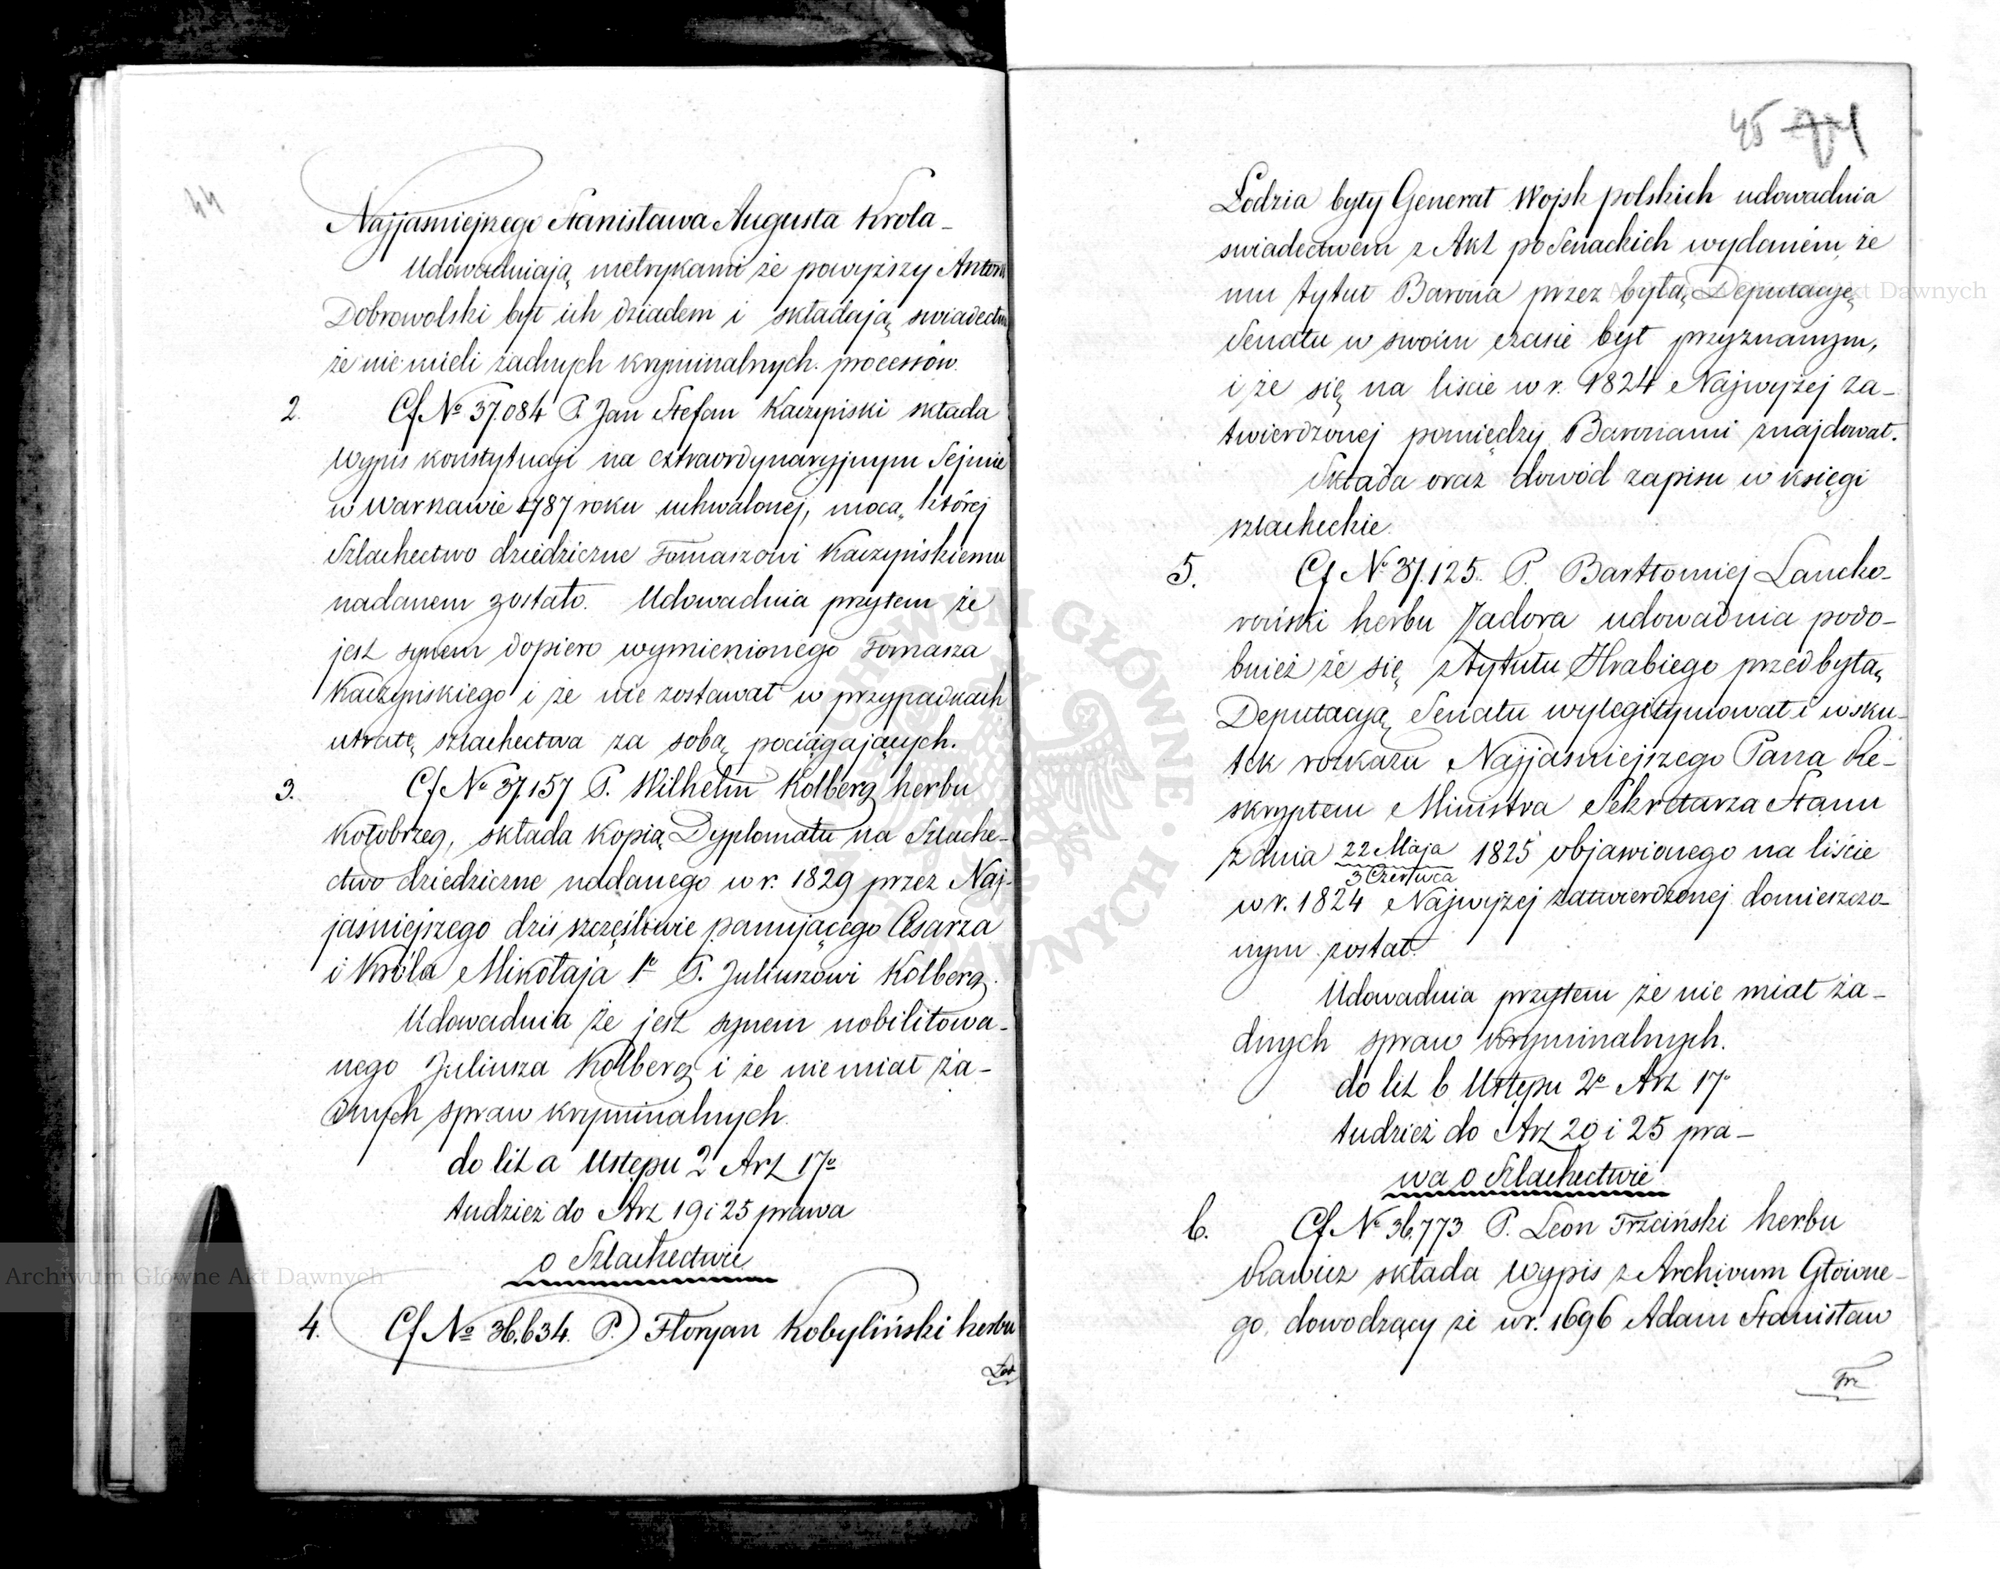 44
Najjasniejszego Stanisława Augusta Krola_
Udowadniają metrykami że powyższy Anton
Dobrowolski był ich dziadem i składają swiadectw
że nie mieli żadnych kryminalnych processów.
2. Cf Nº 37.084 P. Jan Stefan Kaczyński składa
Wypis konstytucyi na extraordynaryjnym Sejmie
w Warszawie 1787 roku uchwalonej, mocą której
Szlachectwo dziedziczne Tomaszowi Kaczyńskiemu
nadanem zostało. Udowadnia przytem że
jest synem dopiero wymienionego Tomasza
Kaczyńskiego i że nie zostawał w przypadkach
utratę szlachectwa za sobą pociągających.
3. Cf Nº 37.157 P. Wilhelm Kolberg herbu
Kołobrzeg, składa kopią Dyplomatu na Szlache-
ctwo dziedziczne nadanego w r. 1829 przez Naj-
jaśniejszego dziś szczęśliwie panującego Cesarza
i Króla Mikołaja 1º P. Juliuszowi Kolberg.
Udowadnia że jest synem nobilitowa-
nego Juliusza Kolberg i że nie miał ża-
dnych spraw kryminalnych.
do lit a Ustępu 2 Art 17º
tudzież do Art 19 i 25 prawa
o Szlachectwie
4. Cf Nº 36.634. P. Floryan Kobyliński herbu
Łod
45
Łodzia były Generał Wojsk polskich udowadnia
swiadectwem z Akt po Senackich wydanem, że
mu tytuł Barona przez byłą Deputacyę
Senatu w swoim czasie był przyznanym,
i że się na liście w r. 1824 Najwyżej za-
twierdzonej pomiędzy Baronami znajdował.
Składa oraz dowód zapisu w księgi
szlacheckie.
5. Cf Nº 37.125. P. Bartłomiej Lancko-
roński herbu Zadora udowadnia podo-
bnież że się z tytułu Hrabiego przed byłą
Deputacyą Senatu wylegitymował i wsku-
tek rozkazu Najjaśniejszego Pana Re-
skryptem Ministra Sekretarza Stanu
z dnia 22 Maja 1825 objawionego na liście
3 Czerwca
w r. 1824 Najwyżej zatwierdzonej domieszczo-
nym został.
Udowadnia przytem że nie miał ża-
dnych spraw kryminalnych.
do lit b Ustępu 2º Art 17º
tudzież do Art 20 i 25 pra-
wa o Szlachectwie
6. Cf Nº 36.773 P. Leon Trzciński herbu
Rawicz składa Wypis z Archivum Główne-
go, dowodzący że w r. 1696 Adam Stanisław
Trz
Archiwum Główne Akt Dawnych